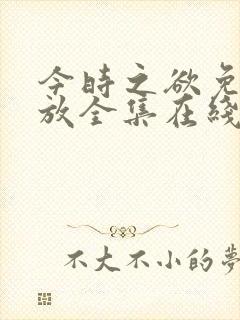 今时之欲免
放全集在綫
不大不小的夢